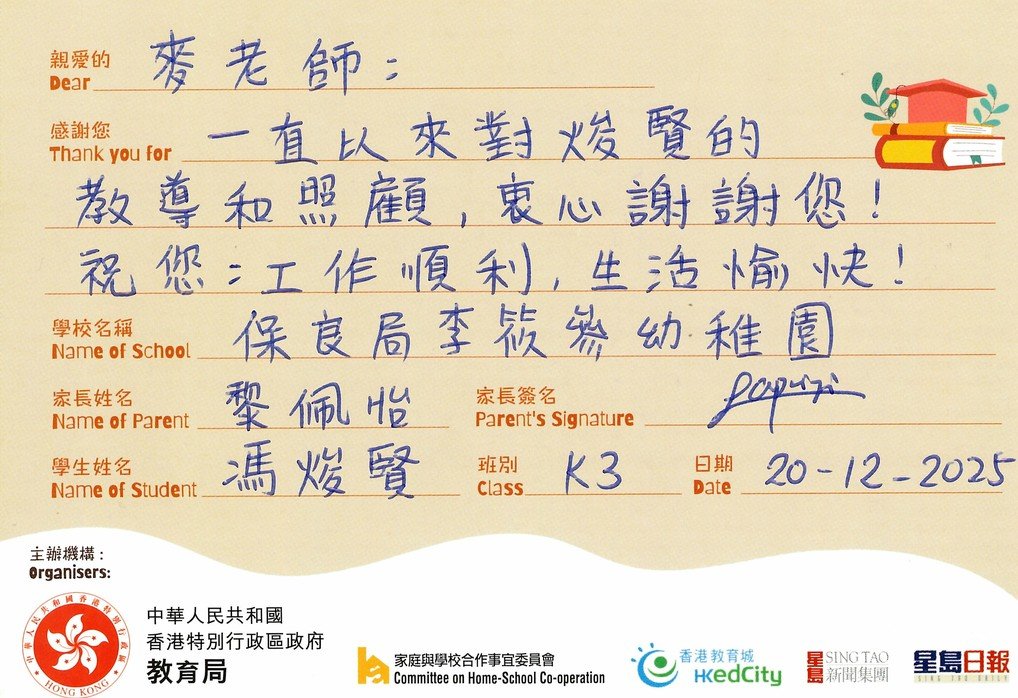 親愛的 麥老師：
Dear
感謝您 一直以來對焌賢的
Thank you for
教導和照顧，衷心謝謝您！
祝您：工作順利，生活愉快！
學校名稱 保良局李筱參幼稚園
Name of School
家長姓名 黎佩怡 家長簽名
Name of Parent Parent's Signature
學生姓名 馮焌賢 班別 K3 日期 20-12-2025
Name of Student Class Date
主辦機構：
Organisers:
中華人民共和國
香港特別行政區政府
教育局
中華人民共和國香港特別行政區
HONG KONG
家庭與學校合作事宜委員會
Committee on Home-School Co-operation
香港教育城
HKedCity
星島 SING TAO
新聞集團
星島日報
SING TAO DAILY